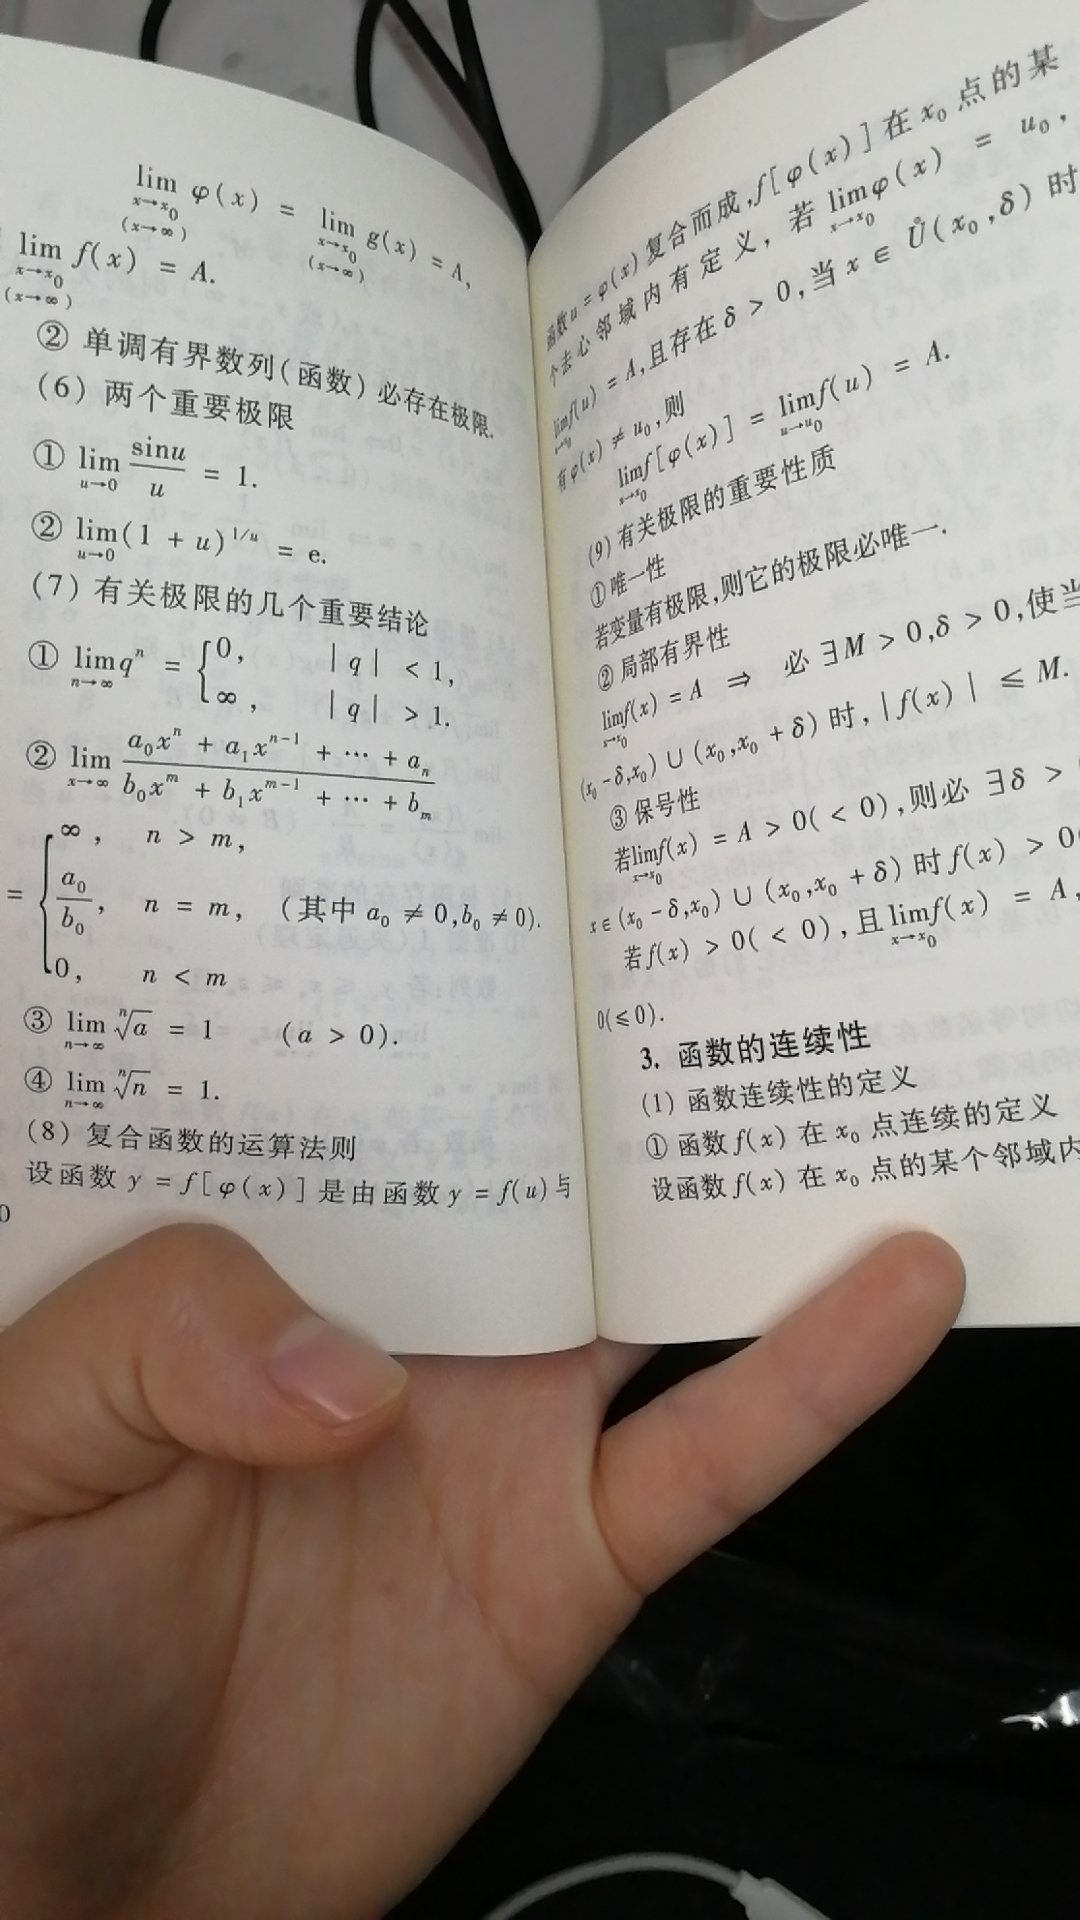 lim φ(x) = lim g(x) = A,
x→x₀ x→x₀
(x→∞) (x→∞)
lim f(x) = A.
x→x₀
(x→∞)
② 单调有界数列(函数)必存在极限.
(6) 两个重要极限
① lim sinu/u = 1.
u→0
② lim(1 + u)^{1/u} = e.
u→0
(7) 有关极限的几个重要结论
① lim qⁿ = { 0, |q| < 1,
n→∞
∞, |q| > 1.
② lim (a₀xⁿ + a₁xⁿ⁻¹ + ⋯ + aₙ)/(b₀xᵐ + b₁xᵐ⁻¹ + ⋯ + bₘ)
x→∞
= { ∞, n > m,
a₀/b₀, n = m, (其中 a₀ ≠ 0, b₀ ≠ 0).
0, n < m
③ lim ⁿ√a = 1 (a > 0).
n→∞
④ lim ⁿ√n = 1.
n→∞
(8) 复合函数的运算法则
设函数 y = f[φ(x)] 是由函数 y = f(u) 与
0
函数 u = φ(x) 复合而成, f[φ(x)] 在 x₀ 点的某
个去心邻域内有定义, 若 lim φ(x) = u₀,
x→x₀
lim f(u) = A, 且存在 δ > 0, 当 x ∈ Ů(x₀, δ) 时
有 φ(x) ≠ u₀, 则
lim f[φ(x)] = lim f(u) = A.
x→x₀ u→u₀
(9) 有关极限的重要性质
① 唯一性
若变量有极限, 则它的极限必唯一.
② 局部有界性
lim f(x) = A ⇒ 必 ∃M > 0, δ > 0, 使当
x→x₀
(x₀ - δ, x₀) ∪ (x₀, x₀ + δ) 时, |f(x)| ≤ M.
③ 保号性
若 lim f(x) = A > 0(< 0), 则必 ∃δ >
x→x₀
x ∈ (x₀ - δ, x₀) ∪ (x₀, x₀ + δ) 时 f(x) > 0(
若 f(x) > 0(< 0), 且 lim f(x) = A,
x→x₀
0(≤0).
3. 函数的连续性
(1) 函数连续性的定义
① 函数 f(x) 在 x₀ 点连续的定义
设函数 f(x) 在 x₀ 点的某个邻域内